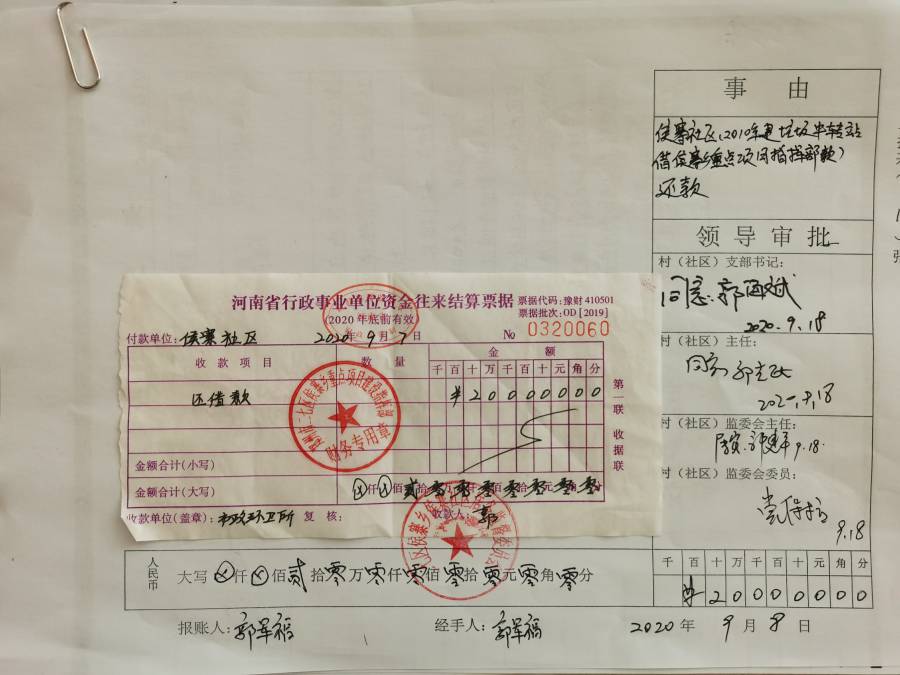 事由
侯寨社区(2010年建垃圾中转站
借侯寨乡重点项目指挥部款)
还款
领导审批
村（社区）支部书记:
2020.9.18
村（社区）主任:
村（社区）监委会主任:
9.18
村（社区）监委会委员:
9.18
河南省行政事业单位资金往来结算票据
(2020年底前有效)
票据代码:豫财 410501
票据批次:OD [2019]
付款单位:侯寨社区 2020年9月7日 No 0320060
收款项目 数量 金额
千百十万千百十元角分
还借款 ¥20000000
金额合计(小写)
金额合计(大写) ⊗仟⊗佰贰拾零万零仟零佰零拾零元零角零分
第一联 收据联
财务专用章
收款单位(盖章):市政环卫所 复核: 收款人:郭
人民币 大写 ⊗仟⊗佰贰拾零万零仟零佰零拾零元零角零分
千百十万千百十元角分
¥20000000
报账人:郭军福 经手人:郭军福 2020年9月8日